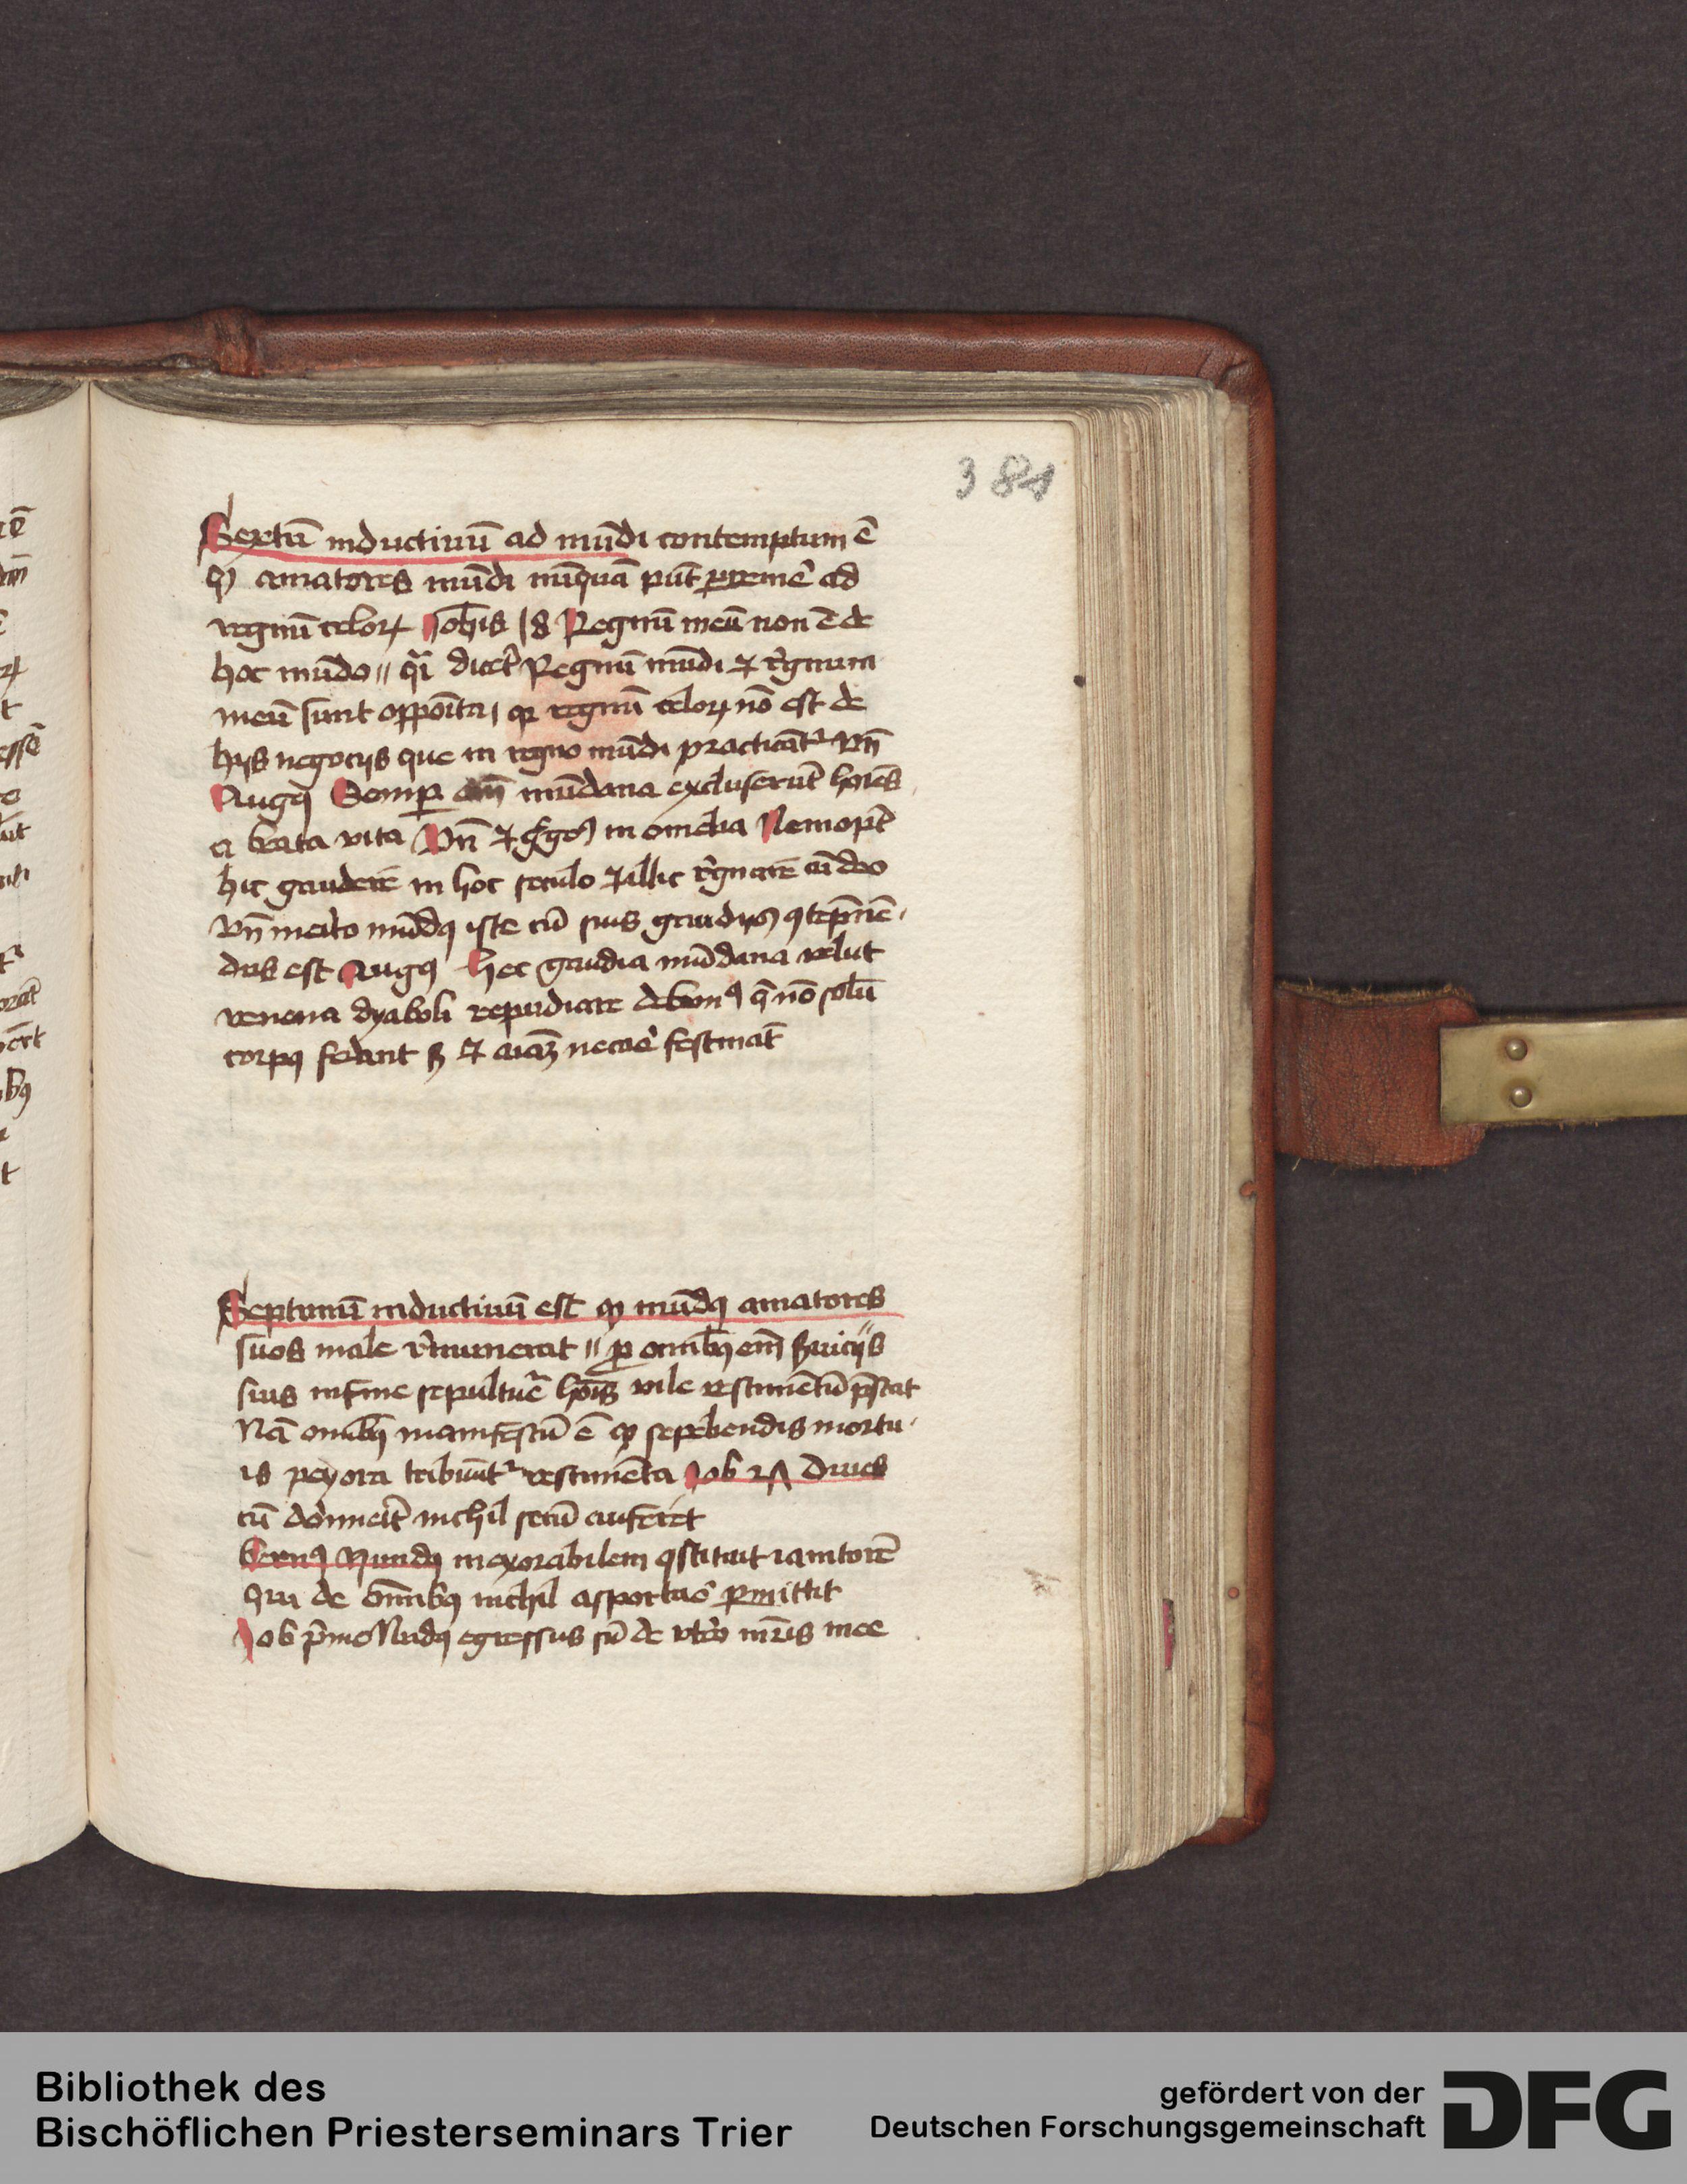 381
Sextū inductiuū ad mūdi contemptum ē
ꝙ amatores mūdi nūquā pn̄t ꝑuenire ad
regnū celoꝝ Johis 18 Regnū meū non ē de
hoc mūdo // q̄i dicet̉ Regnū mūdi ⁊ regnum
meū sunt opposita / qꝛ regnū celoꝝ nō est de
hijs negocijs que in regno mūdi practicāt̉ Vn̄
Augꝰ Semꝑ mūdana excluserūt hoīes
a beata vita Vn̄ ⁊ Gregoꝰ in omelia Nemo pt̄
hic gaudere in hoc seculo ⁊ illic regnare cū deo
Vn̄ merito mūdꝰ iste cū suis gaudijs ꝯtēpnē-
dus est Augꝰ Hec gaudia mūdana velut
venena dyaboli repudiare debemꝰ q̄ nō solū
corpꝰ fedant sꝫ ⁊ aiaꝫ necare festināt
Septimū inductiuū est ꝙ mūdꝰ amatores
suos male remunerat // pro omībꝫ em̄ ẜuicijs
suis in fine sepulture hoīs vile vestimentū p̄stat
Nā omībꝫ manifestū ē ꝙ sepeliendis mortu-
is peyora tribuūt̉ vestimēta Job 27 Diues
cū dormierit nichil secū auferet
Bernꝰ Mundꝰ inexorabilem ꝯstituit ianitorē
Qui de omībꝫ nichil asportare ꝑmittit
Job p̄mo Nudꝰ egressus sū de vtero mr̄is mee
Bibliothek des
Bischöflichen Priesterseminars Trier
gefördert von der
Deutschen Forschungsgemeinschaft
DFG